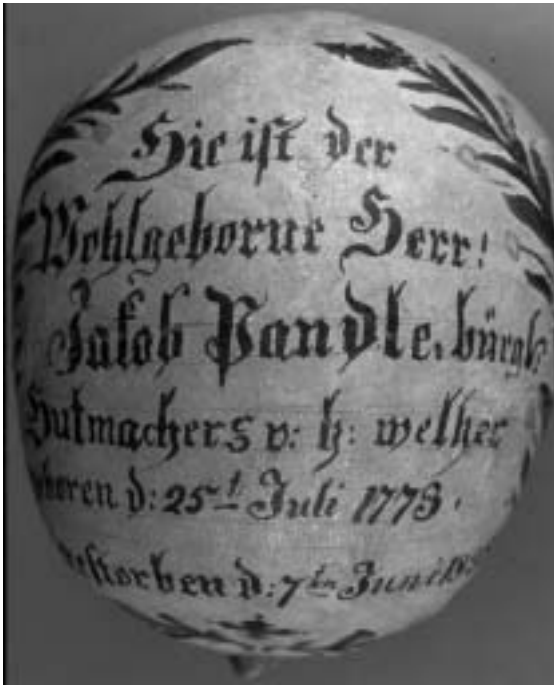 Hie ist der
Wohlgeborne Herr!
Jakob Pandle. bürgl:
Hutmachers v: h: welher
boren d: 25t Juli 1778.
estorben d: 7ten Juni